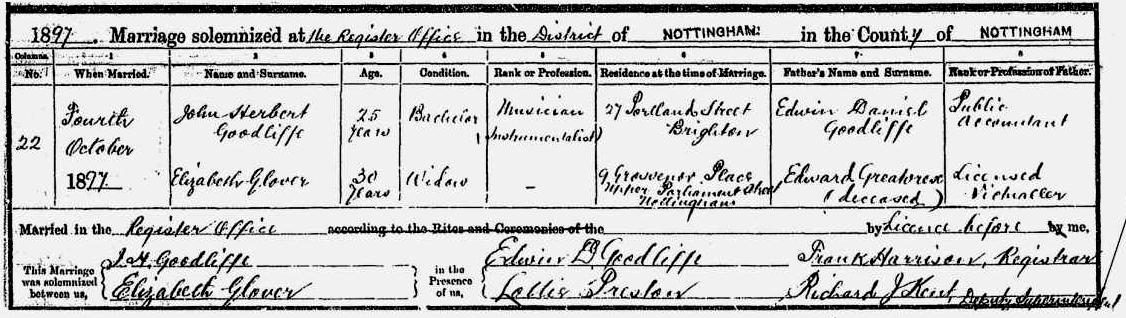 1897. Marriage solemnized at the Register Office in the District of NOTTINGHAM in the County of NOTTINGHAM
Columns. 1 2 3 4 5 6 7 8
No. When Married. Name and Surname. Age. Condition. Rank or Profession. Residence at the time of Marriage. Father's Name and Surname. Rank or Profession of Father.
22 Fourth October 1897 John Herbert Goodliffe 25 years Bachelor Musician (Instrumentalist) 27 Portland Street Brighton Edwin Daniel Goodliffe Public Accountant
Elizabeth Glover 30 years Widow — 9 Grosvenor Place Upper Parliament Street Nottingham Edward Greatorex (deceased) Licensed Victualler
Married in the Register Office according to the Rites and Ceremonies of the by Licence before by me,
This Marriage was solemnized between us, J. H. Goodliffe Elizabeth Glover in the Presence of us, Edwin D. Goodliffe Preston Frank Harrison, Registrar Richard J Kent, Deputy Superintendent